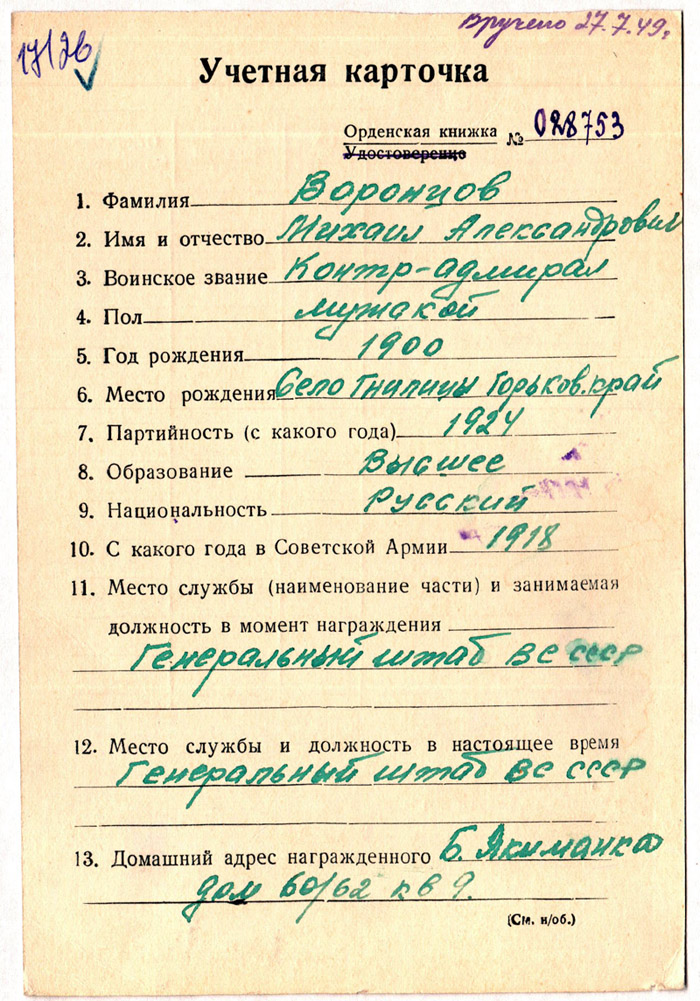 Вручено 27.7.49г
17/26
Учетная карточка
Орденская книжка № 028753
Удостоверенно
1. Фамилия Воронцов
2. Имя и отчество Михаил Александрович
3. Воинское звание Контр-адмирал
4. Пол мужской
5. Год рождения 1900
6. Место рождения Село Гнилицы Горьков. край
7. Партийность (с какого года) 1924
8. Образование Высшее
9. Национальность Русский
10. С какого года в Советской Армии 1918
11. Место службы (наименование части) и занимаемая
должность в момент награждения
Генеральный штаб ВС СССР
12. Место службы и должность в настоящее время
Генеральный штаб ВС СССР
13. Домашний адрес награжденного Б. Якиманка
дом 60/62 кв 9.
(См. н/об.)